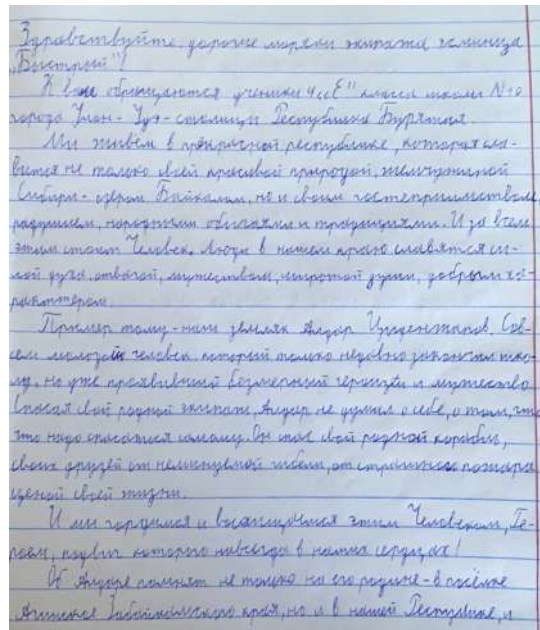 Здравствуйте, дорогие моряки экипажа эсминца
„Быстрый"!
К вам обращаются ученики 4 „Е" класса школы №19
города Улан-Удэ - столицы Республики Бурятия.
Мы живём в прекрасной республике, которая сла-
вится не только своей красивой природой, жемчужиной
Сибири - озером Байкалом, но и своим гостеприимством,
радушием, народными обычаями и традициями. И за всем
этим стоит Человек. Люди в нашем краю славятся си-
лой духа, отвагой, мужеством, широтой души, добрым ха-
рактером.
Пример тому - наш земляк Алдар Цыденжапов. Сов-
сем молодой человек, который только недавно закончил шко-
лу, но уже проявивший безмерный героизм и мужество.
Спасая свой родной экипаж, Алдар не думал о себе, о том, что
что надо спасаться самому. Он спас свой родной корабль,
своих друзей от неминуемой гибели, от страшного пожара
ценой своей жизни.
И мы гордимся и восхищаемся этим Человеком, Ге-
роем, подвиг которого навсегда в наших сердцах!
Об Алдаре помнят не только на его родине - в посёлке
Агинское Забайкальского края, но и в нашей Республике, и